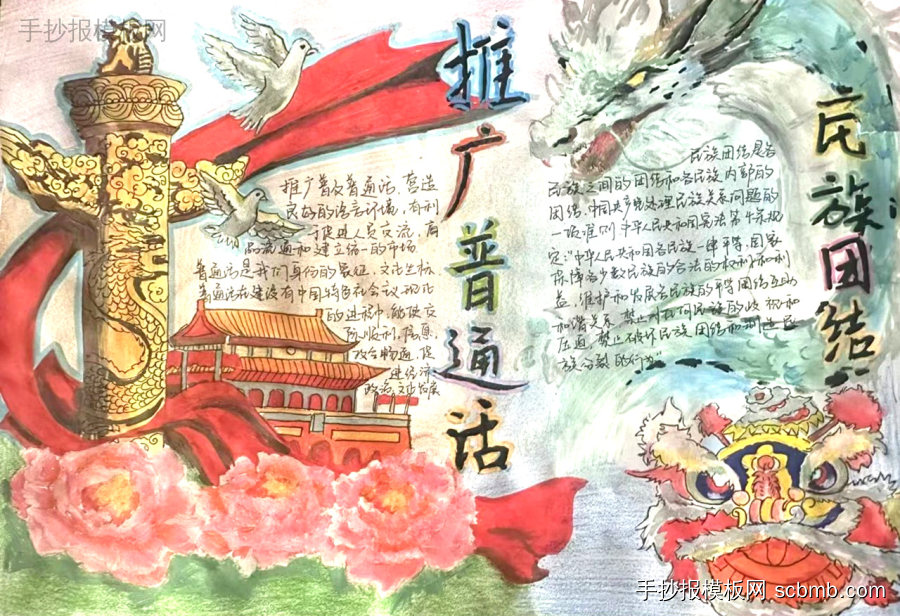 手抄报模板网
推广普通话
推广普及普通话,营造
良好的语言环境,有利
于促进人员交流,商
品流通和建立统一的市场
普通话是我们身份的象征,文化坐标
普通话在建设有中国特色社会主义现代化
的进程中,能使交
际顺利,信息
政令畅通,促
进经济
政治,文化发展
民族团结
民族团结是各
民族之间的团结和各民族内部的
团结,中国共产党处理民族关系问题的
一项准则,中华人民共和国宪法第4条规
定:"中华人民共和国各民族一律平等,国家
保障各少数民族的合法的权利和利
益,维护和发展各民族的平等团结互助
和谐关系,禁止对任何民族的歧视和
压迫,禁止破坏民族团结和制造民
族分裂的行为"
手抄报模板网 scbmb.com